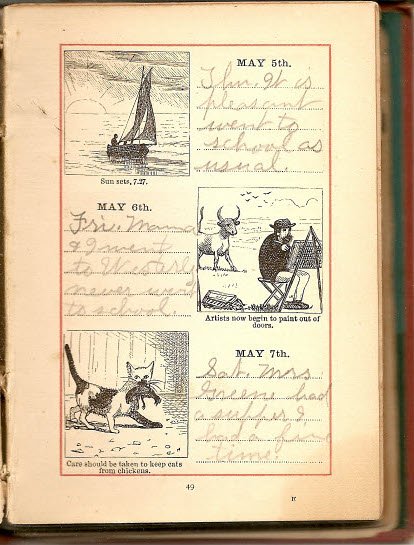 MAY 5th.
Thu. It is
pleasant
went to
school as
usual.
Sun sets, 7.27.
MAY 6th.
Fri. Mama
& I went
to Westerly
never went
to school.
Artists now begin to paint out of
doors.
MAY 7th.
Sat. Mrs
Greene had
a supper I
had a fine
time
Care should be taken to keep cats
from chickens.
49
E